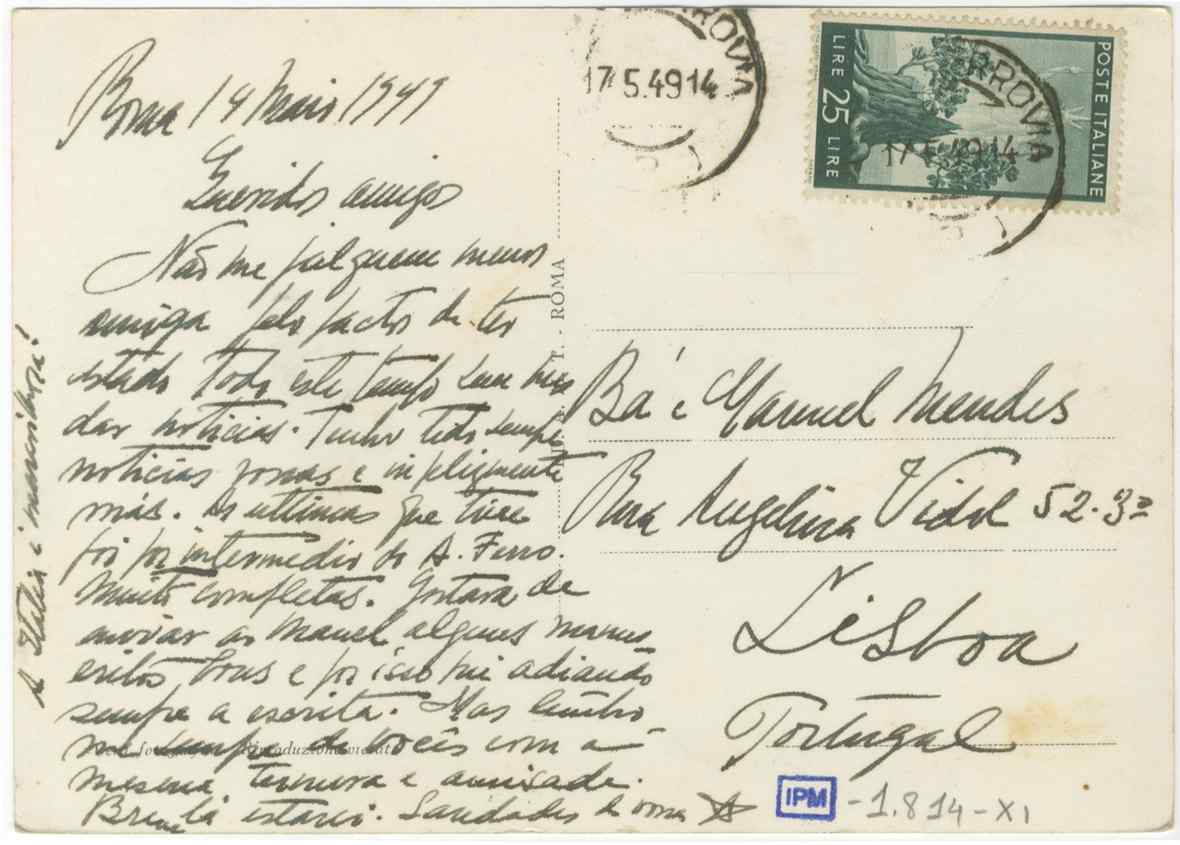 Roma 14 Maio 1949
Queridos amigos
Não me julguem menos
amiga pelo facto de ter
estado todo este tempo sem vos
dar noticias. Tenho tido sempre
noticias vossas e infelizmente
más. As ultimas que tive
foi por intermedio do A. Ferro.
Muito completas. Gostava de
enviar ao Manel alguns manus
critos bons e por isso fui adiando
sempre a escrita. Mas lembro
me sempre de vocês com a
mesma ternura e amisade.
Breve lá estarei. Saudades da vossa
A Italia é maravilhosa!
ROMA
17.5.49 14
RROVIA
POSTE ITALIANE
LIRE 25 LIRE
RROVIA
17.5.49 14
Bá e Manuel Mendes
Rua Angelina Vidal 52-3º
Lisboa
Portugal
IPM -1.814-XI